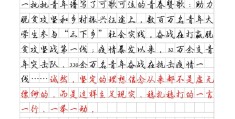 一批批青年谱写了可歌可泣的青春赞歌：助力
脱贫攻坚和乡村振兴征途上，数百万名青年大
学生参与“三下乡”社会实践，奋战在打赢脱
贫攻坚战第一线；疫情暴发以来，32万余支青
年突击队、550余万名青年奋战在抗击疫情一
线……诚然，坚定的理想信念从来都不是虚无
缥缈的，而是这样生义现实、稳扎稳打的一言
一行、一举一动。